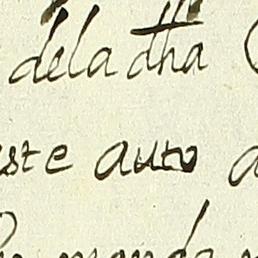 dela dha
ste auto
manda